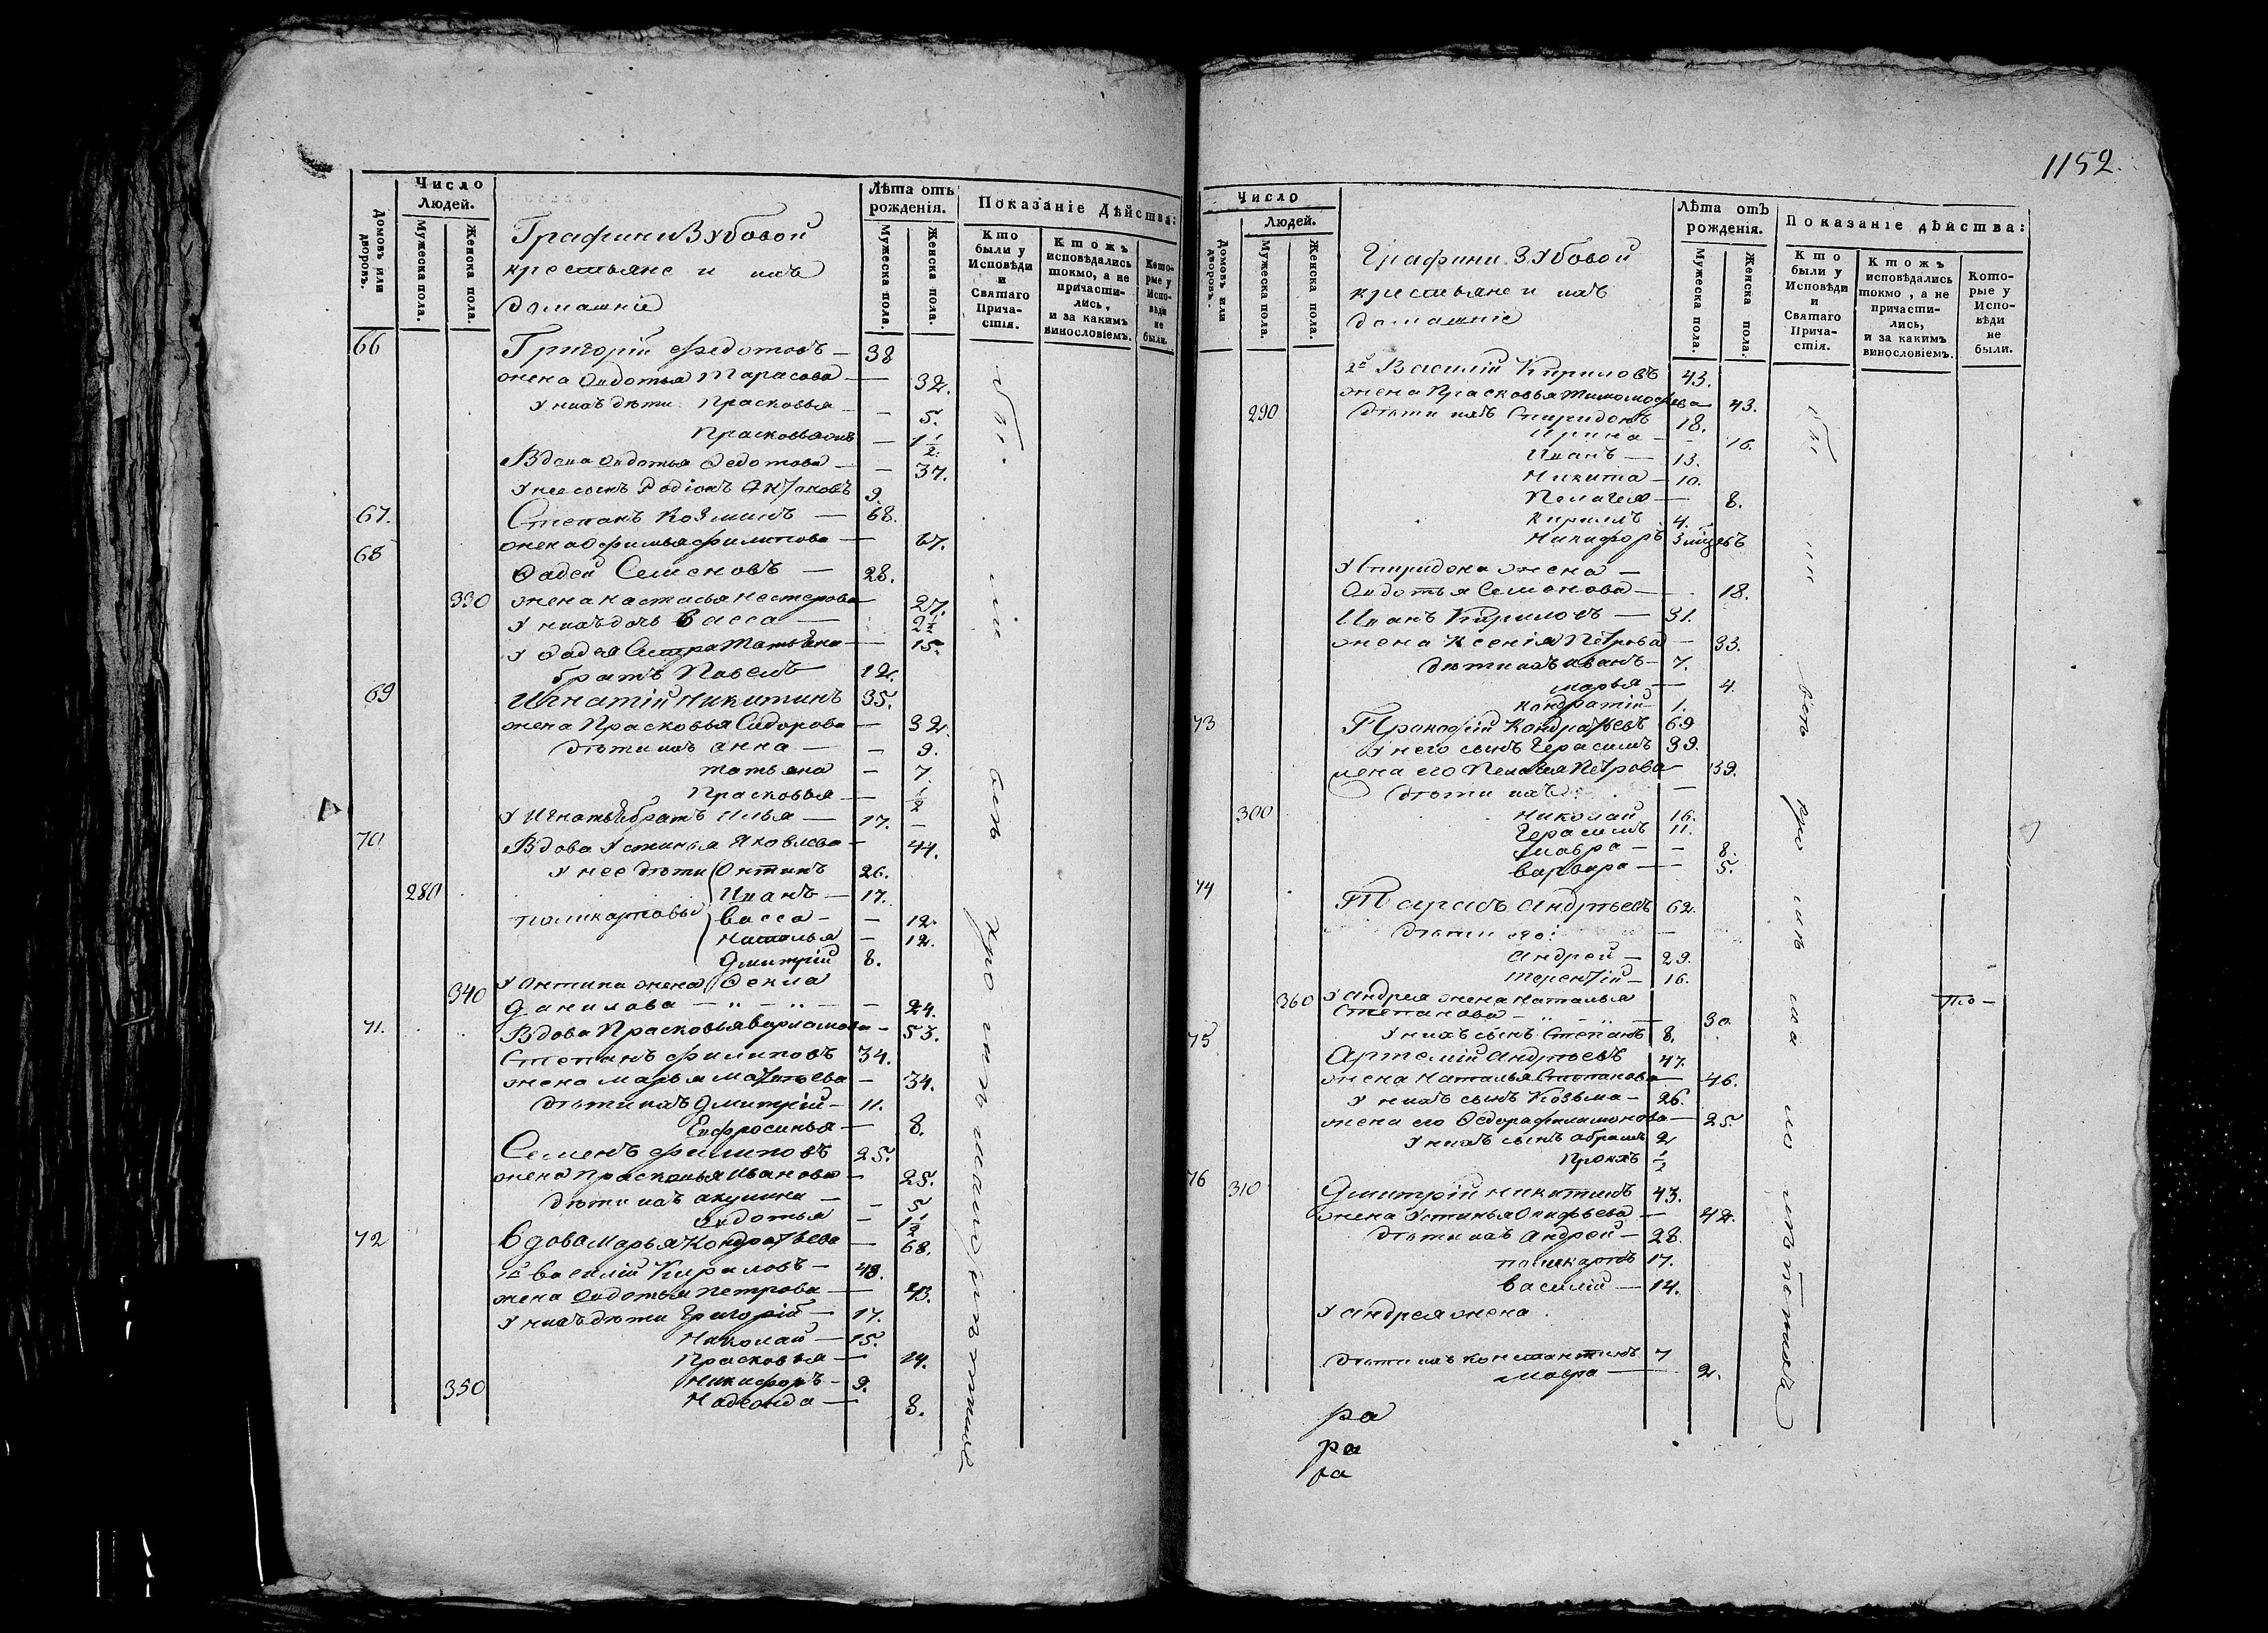 Число
Людей.
Домовъ или дворовъ.
Мужеска пола.
Женска пола.
Графини Зубовой
крестьяне и ихъ
домашніе
Лѣта отъ
рожденія.
Мужеска пола.
Женска пола.
Показаніе Дѣйства:
Кто были у Исповѣди и Святаго Прича-стія.
Ктожъ исповѣдались токмо, а не причасти-лись, и за какимъ винословіемъ.
Кото-рые у Испо-вѣди не были.
66 Григорій Федотовъ — 38
жена Овдотья Тарасова — 32.
У нихъ дѣти Прасковья — 5.
Прасковья — 1 1/2.
Вдова Овдотья Федотова — 37.
У нее сынъ Родіонъ 9.
67. Степанъ Козминъ — 68.
жена Офимья Филипова — 67.
68 Фадей Семеновъ — 28.
330 жена Настасья Нестерова — 27.
У нихъ дочь Васса — 2 1/2
У Фадея Сестра Татьяна — 15.
братъ Павелъ 12.
69 Игнатій Никитинъ 35.
жена Прасковья Сидорова — 32.
дѣти ихъ Анна — 9.
Татьяна — 7.
Прасковья — 1/2
У Игнатья братъ Илья — 17. —
70 Вдова Устинья Яковлева — 44.
У нее дѣти Онтипъ 26.
280 Иванъ — 17.
Поликарповы Васса — 12.
Наталья — 12.
Дмитрій 8.
У Онтипа жена Фекла
340 Данилова — „ — „ — 24.
71. Вдова Прасковья Варламова — 53.
Степанъ Филиповъ 34.
жена Марья Матвѣева — 34.
дѣти ихъ Дмитрій — 11.
Евфросинья — 8.
Семенъ Филиповъ 25.
жена Прасковья Иванова — 25.
дѣти ихъ Акулина — 5
Овдотья — 1 1/2
72 Вдова Марья Кондратьева — 68.
1й Василій Кириловъ — 48.
жена Овдотья Петрова — 43.
У нихъ дѣти Григорій — 17.
Николай — 15.
Прасковья — 14.
Никифоръ — 9.
350 Надежда — 8.
1152.
Число
Людей.
Домовъ или дворовъ.
Мужеска пола.
Женска пола.
Графини Зубовой
крестьяне и ихъ
домашніе
Лѣта отъ
рожденія.
Мужеска пола.
Женска пола.
Показаніе дѣйства:
Кто были у Исповѣди и Святаго Прича-стія.
Ктожъ исповѣдались токмо, а не причасти-лись, и за какимъ винословіемъ.
Кото-рые у Испо-вѣди не были.
2й Василій Кириловъ 43.
жена Прасковья Тимофеева 43.
290 дѣти ихъ Спиридонъ 18.
Ирина — 16.
Иванъ — 13.
Никита — 10.
Пелагея — 8.
Кирилъ 4.
Никифоръ 3
У Спиридона жена —
Овдотья Семенова — 18.
Иванъ Кириловъ — 31.
жена Ксенія Петрова — 33.
дѣти ихъ Иванъ — 7.
Марья — 4.
Кондратій 1.
73 Прокофій Кондратьевъ 69
У него сынъ Герасимъ 39.
жена его Пелагея Петрова — 39.
дѣти ихъ: —
300 Николай 16.
Герасимъ 11.
Мавра — 8.
Варвара — 5.
74 Тарасъ Андрѣевъ 62.
дѣти его: —
Андрей — 29.
Терентій — 16.
360 У Андрея жена Наталья
Степанова — „ — „ — 30.
У нихъ сынъ Степанъ 8.
75 Артемій Андрѣевъ 47.
жена Наталья Степанова — 46.
У нихъ сынъ Козьма — 26.
жена его Федора Филимонова — 25.
У нихъ сынъ Абрамъ 2
Прокъ 1/2
76 310 Дмитрій Никитинъ 43.
жена Устинья Онифьева — 42.
дѣти ихъ Андрей — 28.
Поликарпъ 17.
Василій — 14.
У Андрея жена
дѣти ихъ Константинъ 7
Мавра — 2.
ра
ра
ра